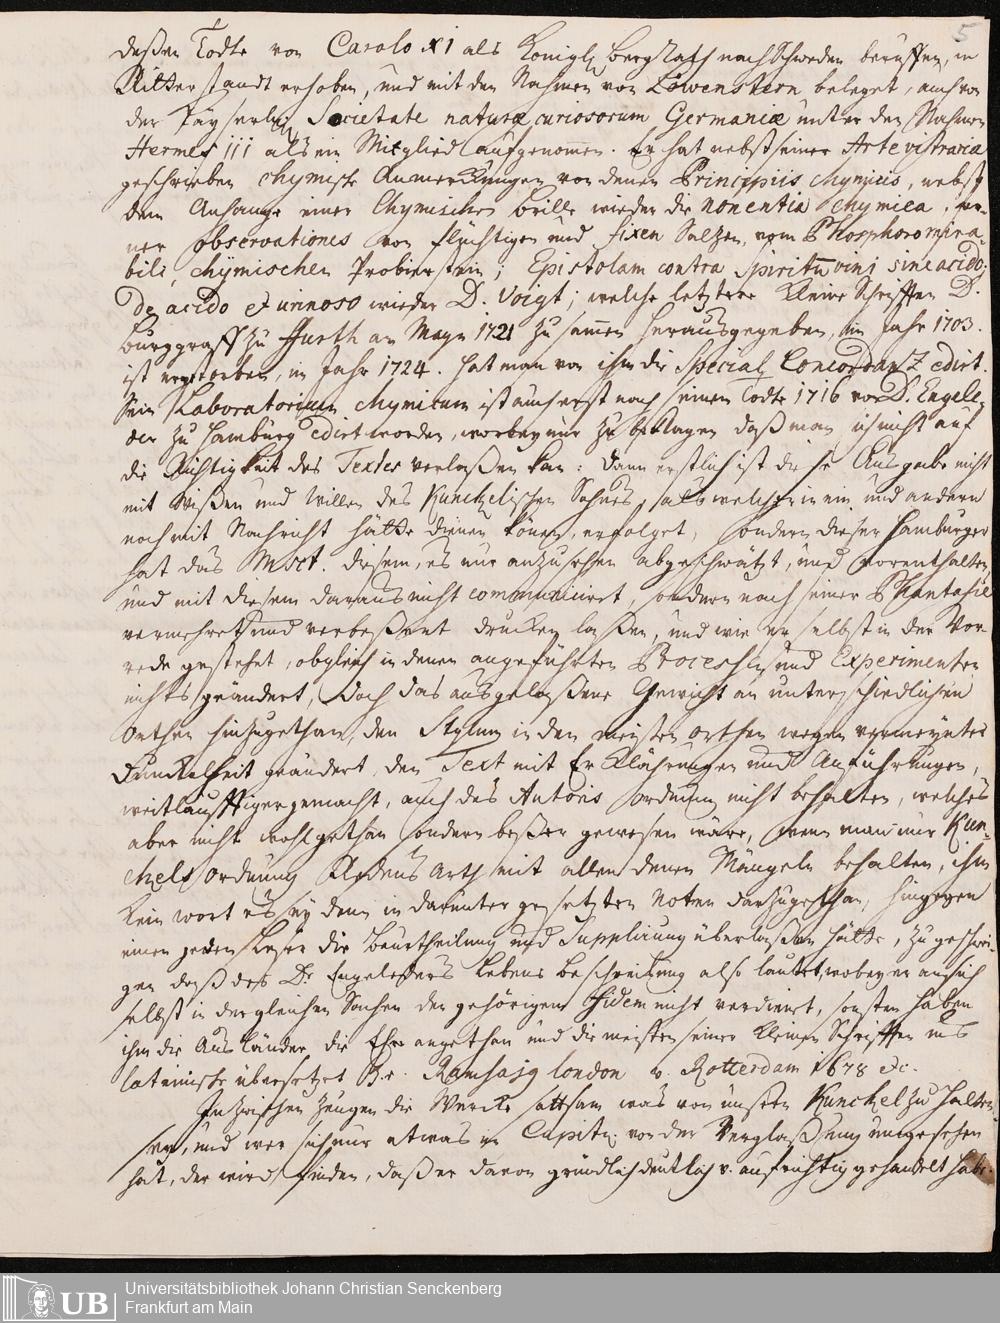 5
deßen Todte von Carolo XI als Königl. BergRath nach Schweden beruffen, in
Ritterstandt erhoben, und mit den Nahmen von Löwenstern beleget, auch von
der Kayserl. Societate naturæ curiosorum Germaniæ unter den Nahmen
Hermes III als ein Mitglied aufgenommen. Er hat nebst seiner Arte vitraria
geschrieben chymische Anmerckungen von denen Principiis chymicis, nebst
dem Anhange einer Chymischen Brille wieder die non entia chymica, fer-
ner observationes von flüchtigen und fixen Saltzen, vom Phosphoro mira-
bili, chymischen Probierstein; Epistolam contra Spiritu vini sine acido;
de acido et urinoso wieder D. Voigt; welche letztere kleine Schrifften D.
Burggraff zu Ffurth am Mayn 1721 zusamen herausgegeben, im Jahr 1703.
ist verstorben, im Jahr 1724. hat man von ihm die Special Concordanz edirt.
Sein Laboratorium chymicum ist auch erst nach seinem Todte 1716 von D. Engelle-
der zu Hamburg edirt worden, worbey nur zu beklagen daß man sich nicht auf
die Richtigkeit des Textes verlaßen kan: dann erstlich ist diese Ausgabe nicht
mit Wißen und Willen des Kunckelischen Sohnes, als welcher in ein und andern
noch mit Nachricht hätte dienen können, erfolget, sondern dieser Hamburger
hat das Msct. diesem, es nur anzusehen abgeschwätzt, und vorenthalten,
und mit diesem daraus nicht communiciret, sondern nach seiner Phantasie
vermehret und verbeßert drucken laßen, und wie er selbst in der Vor-
rede gestehet, obgleich in denen angeführten Processen und Experimenten
nichts geändert, doch das ausgelaßene Gewicht an unterschiedlichen
Orthen hinzugethan, den Stylum in den meisten Orthen wegen vermeynter
Dunckelheit geändert, den Text mit Erklährungen und Anführungen,
weitläufftiger gemacht, auch des Autoris Ordnung nicht behalten, welches
aber nicht wohl gethan sondern beßer gewesen wäre, wenn man nur Kun-
ckels Ordnung Redens Arth mit allen denen Mängeln behalten, ihm
kein wort es sey denn in darunter gesetzten Noten darzugethan, hingegen
einen jeden Leser die Beurtheilung und Supplirung überlaßen hätte, zu geschwei-
gen daß des D. Engelleders Lebens Beschreibung also lautet, wobey er an sich
selbst in dergleichen Sachen den gehörigen fidem nicht verdienet, sonsten haben
ihm die Ausländer die Ehre angethan und die meisten seiner kleinen Schrifften ins
lateinische übersetzet London v. Rotterdam 1678 etc.
Inzwischen zeugen die Wercke sattsam was von unsern Kunckel zu halten
sey, und wer sich nur etwas im Capite von der Verglaßung umgesehen
hat, der wird finden, daß er davon gründlich deutlich v. aufrichtig gehandelt habe.
Universitätsbibliothek Johann Christian Senckenberg
Frankfurt am Main
UB